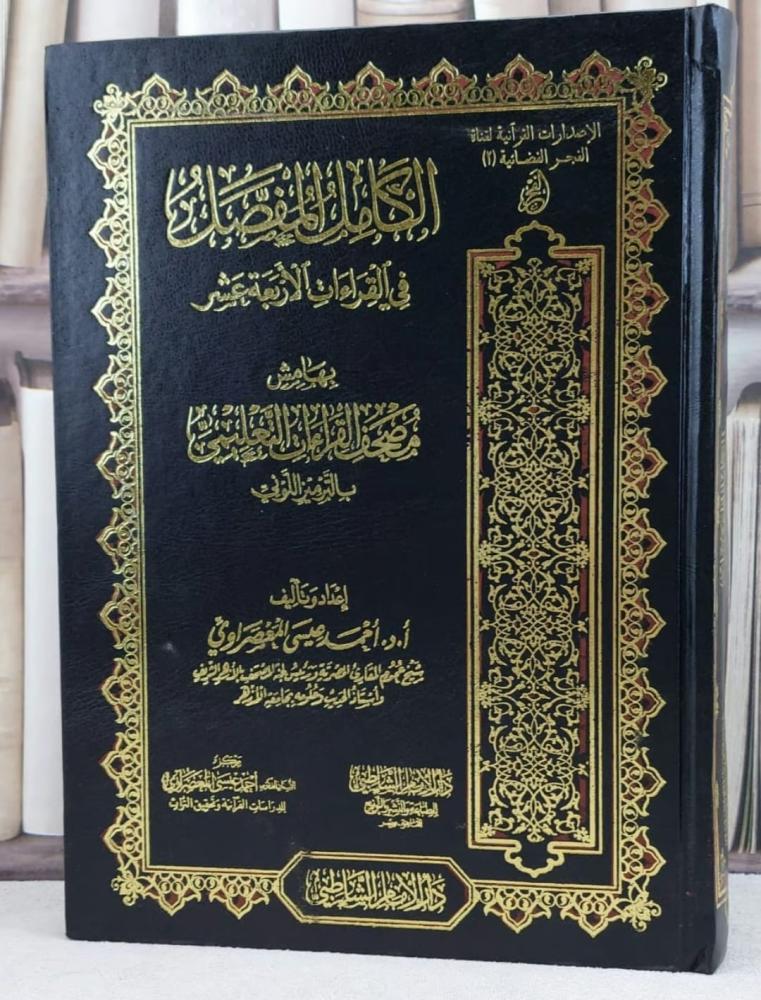 الإصدارات القرآنية لقناة
الفجر الفضائية (٢)
الفجر
الكامل المفصل
في القراءات الأربعة عشر
بهامش
مصحف القراءات التعليمي
بالترميز اللوني
إعداد وتأليف
أ.د. أحمد عيسى المعصراوي
شيخ عموم المقارئ المصرية ورئيس لجنة المصحف بالأزهر الشريف
وأستاذ الحديث وعلومه بجامعة الأزهر
دار الإمام الشاطبي
للطباعة والنشر والتوزيع
القاهرة - مصر
مركز
أحمد عيسى المعصراوي
للدراسات القرآنية وتحقيق التراث
دار الإمام الشاطبي